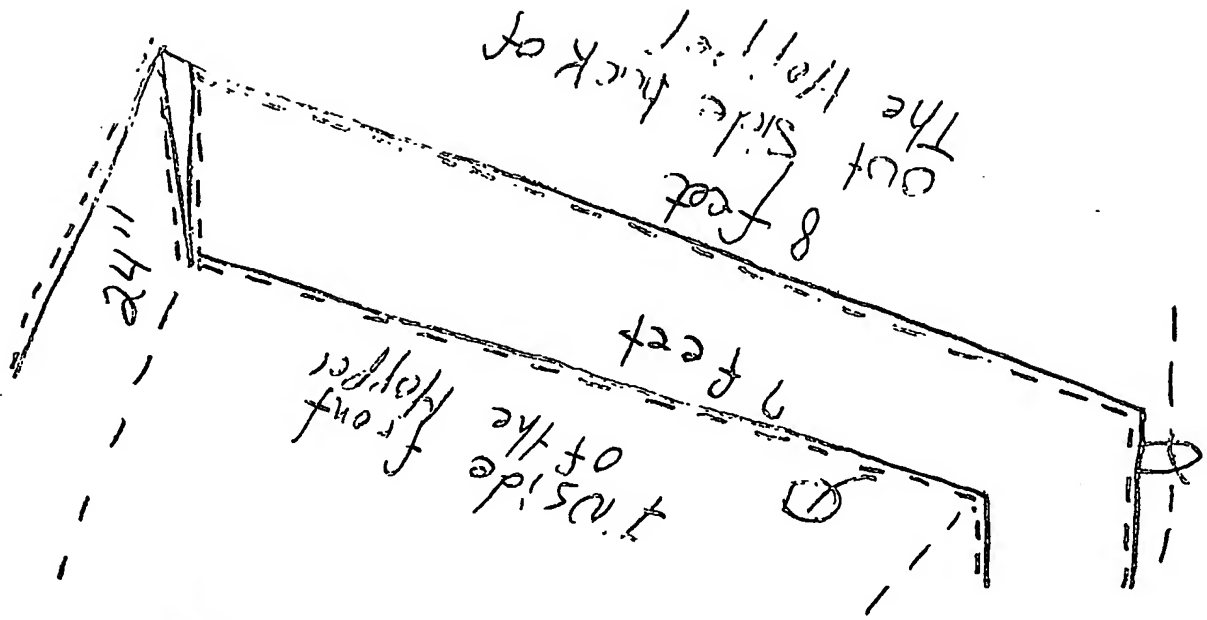 inside front
of the Hopper
7 feet
8 feet
OUT Side back of
The
24"